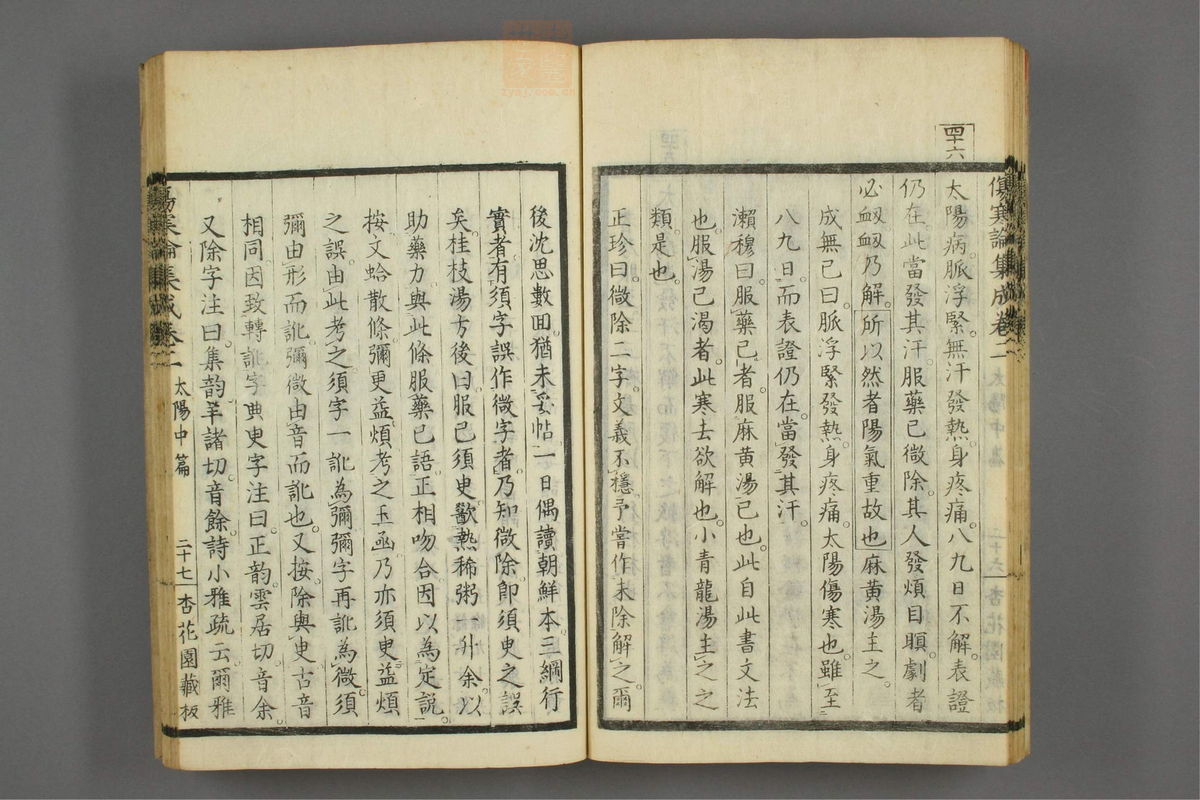 四十六
傷寒論集成卷二
太陽病。脈浮緊。無汗發熱。身疼痛。八九日不解。表證
仍在。此當發其汗。服藥已微除。其人發煩目瞑。劇者
必衂。衂乃解。所以然者陽氣重故也麻黃湯主之。
成無己曰。脈浮緊發熱。身疼痛。太陽傷寒也。雖至
八九日。而表證仍在。當發其汗。
瀨穆曰。服藥已者服麻黃湯已也。此自此書文法
也。服湯已渴者。此寒去欲解也。小青龍湯主之之
類。是也。
正珍曰。微除二字。文義不穩。予嘗作未除解之。爾
後沈思數回。猶未妥帖。一日偶讀朝鮮本三綱行
實者。有須字誤作微字者。乃知微除。即須臾之誤
矣。桂枝湯方後曰。服已須臾。歠熱稀粥一升余。以
助藥力。與此條服藥已語。正相吻合。因以為定說。
按文蛤散條。彌更益煩。考之玉函。乃亦須臾益煩
之誤。由此考之。須字一訛為彌。彌字再訛為微。須
彌由形而訛。彌微由音而訛也。又按除與臾古音
相同。因致轉訛。字典臾字注曰。正韵雲居切。音余。
又除字注曰。集韵羊諸切。音餘。詩小雅疏云。爾雅
傷寒論集成卷二 太陽中篇 二十七 杏花園藏板